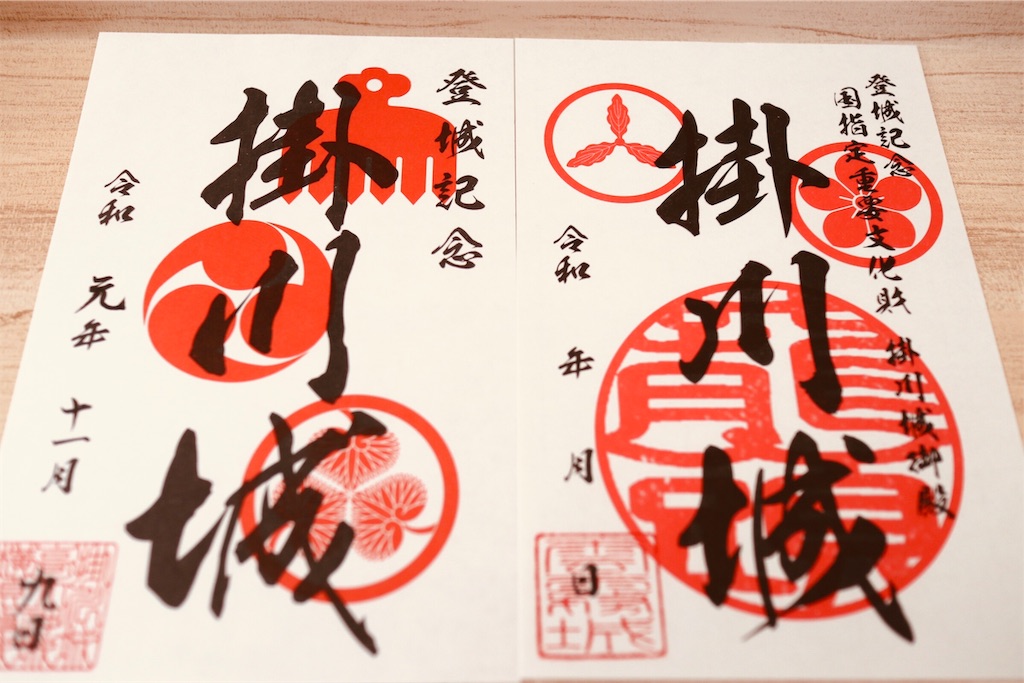 登城記念
掛川城
令和 元年 十一月
九日
登城記念
国指定重要文化財 掛川城御殿
掛川城
令和 年 月
日